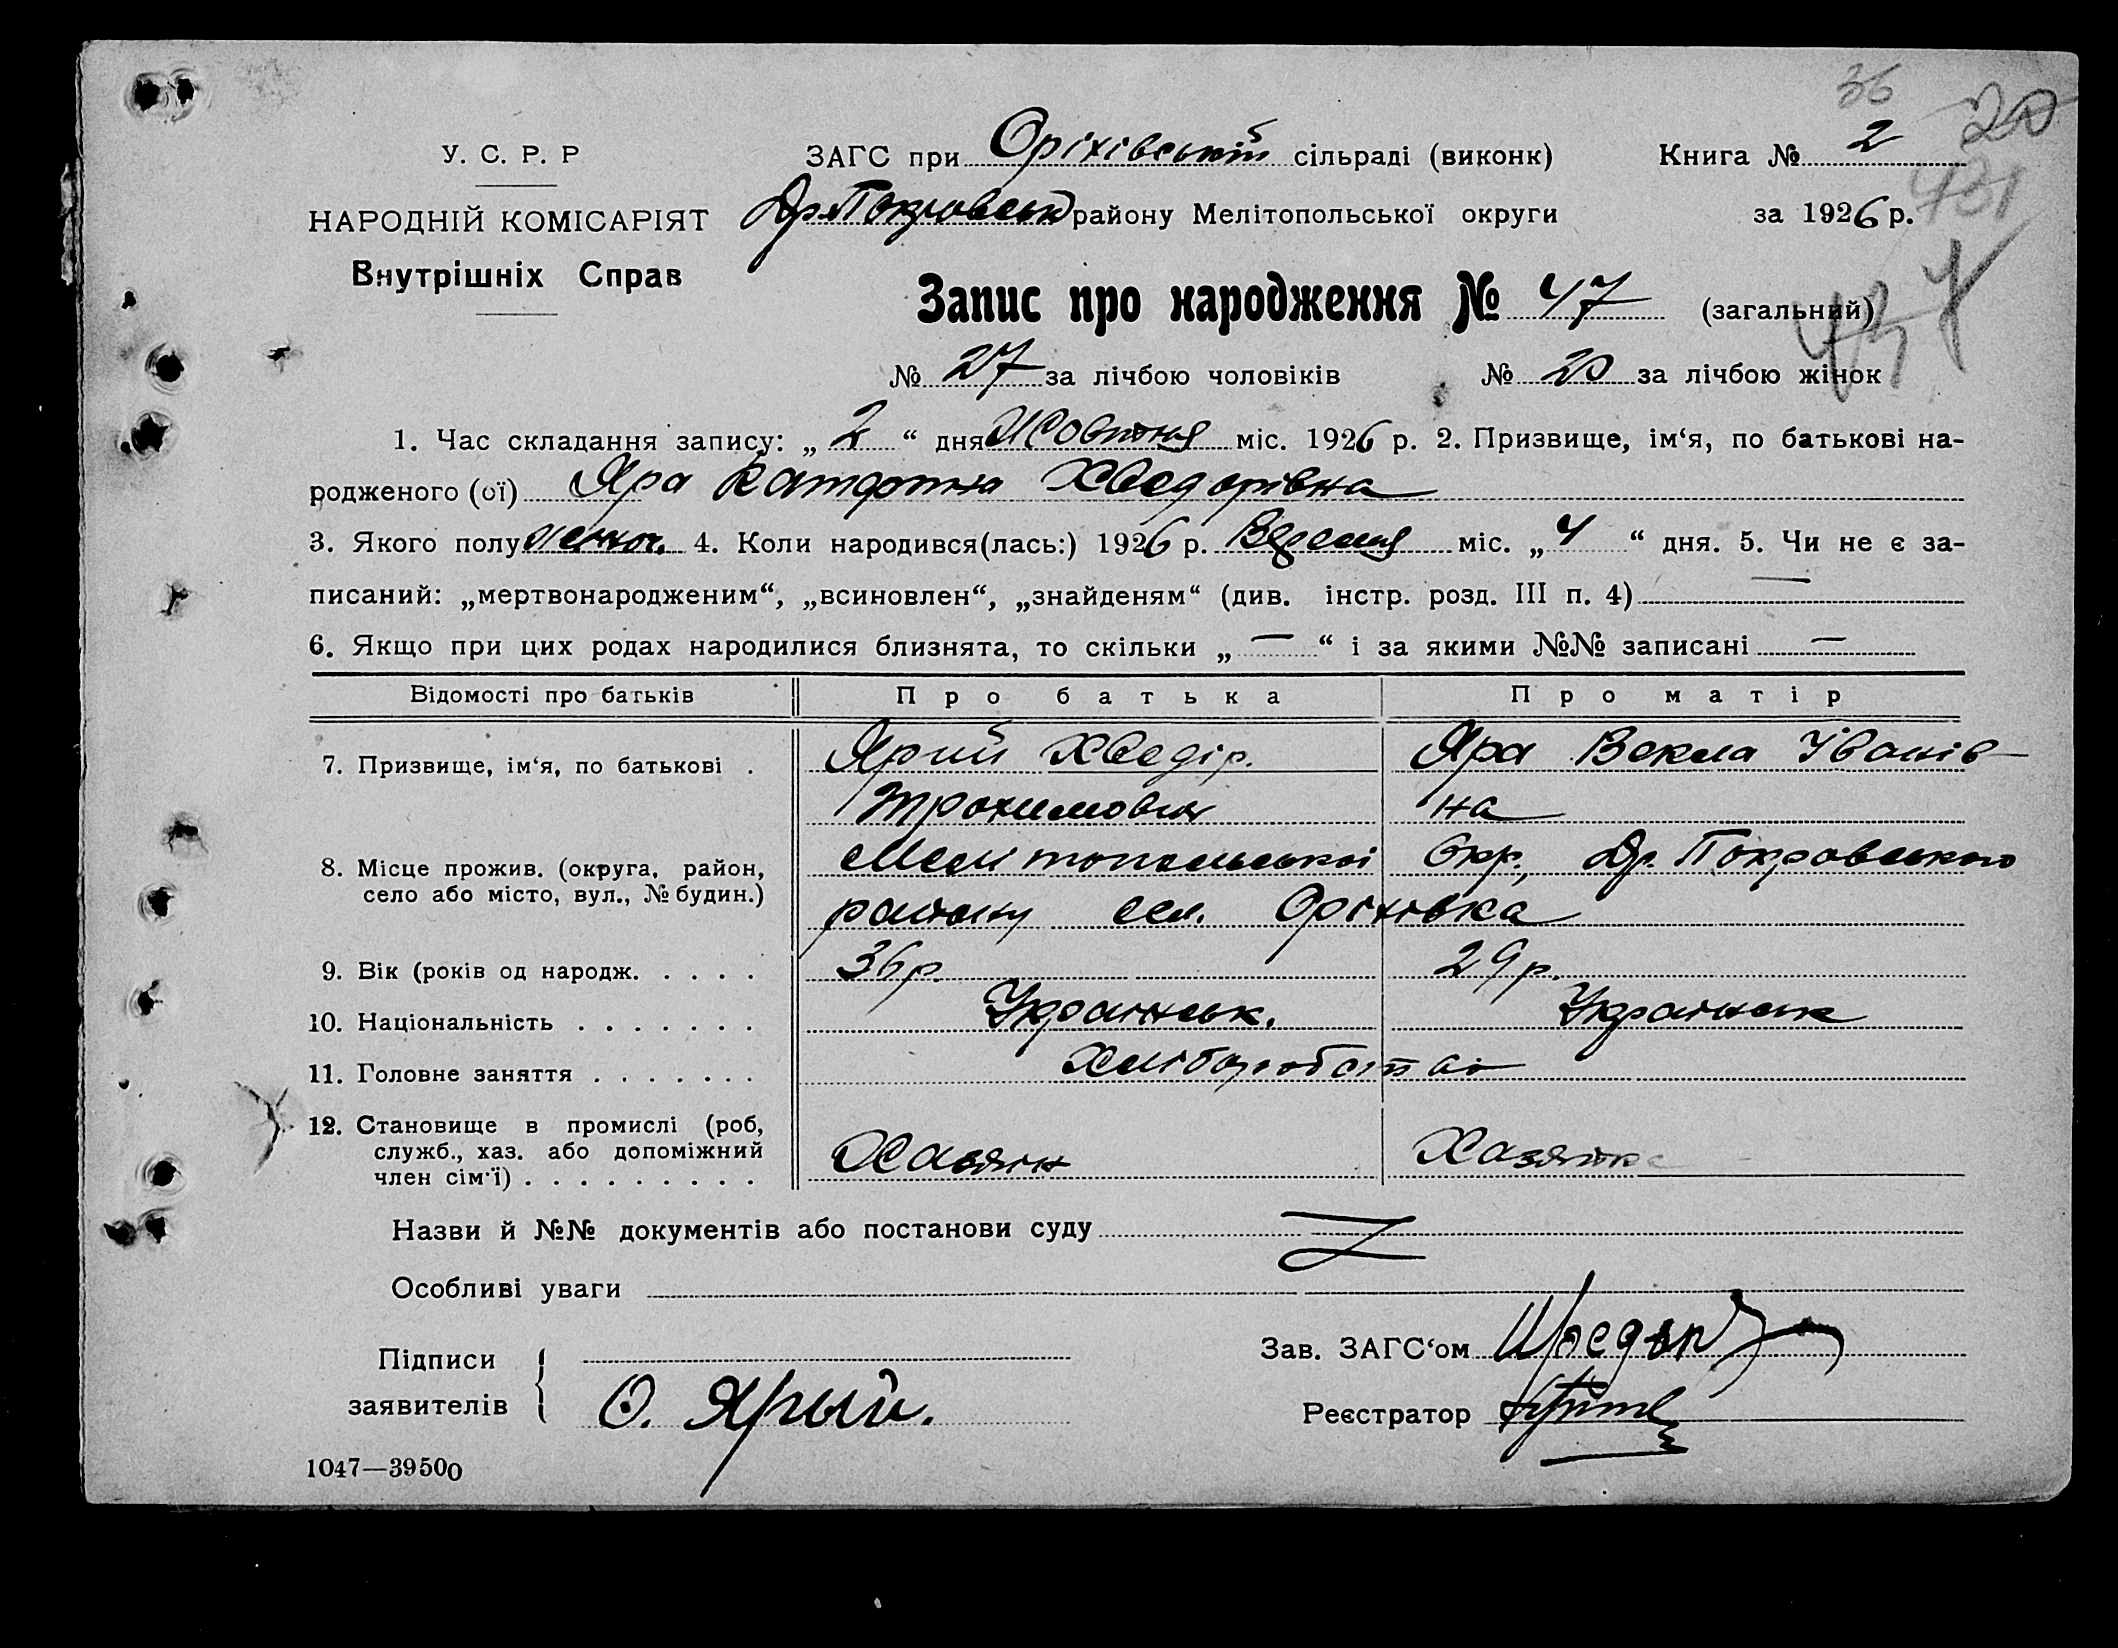 36
20
У. С. Р. Р
ЗАГС при Оріхівській сільраді (виконк)
Книга № 2
431
НАРОДНІЙ КОМІСАРІЯТ
Др.Покровськ району Мелітопольської округи
за 1926 р.
Внутрішніх Справ
Запис про народження № 47 (загальний)
437
№ 27 за лічбою чоловіків № 20 за лічбою жінок
1. Час складання запису: „ 2 “ дня Жовтня міс. 1926 р. 2. Призвище, ім‘я, по батькові на-
родженого (ої) Яра Хведорівна
3. Якого полу жіноч. 4. Коли народився(лась:) 1926 р. Вересня міс. „ 4 “ дня. 5. Чи не є за-
писаний: „мертвонародженим“, „всиновлен“, „знайденям“ (див. інстр. розд. III п. 4) —
6. Якщо при цих родах народилися близнята, то скільки „ — “ і за якими №№ записані —
Відомості про батьків Про батька Про матір
7. Призвище, ім‘я, по батькові . Ярий Хведір. Яра Векла Іванів-
Трохимович на
8. Місце прожив. (округа, район, Мелітопольської Окр., Др. Покровського
село або місто, вул., № будин.) району сел. Оріхівка
9. Вік (років од народж. . . . . 36 р. 29 р.
10. Національність . . . . . . . Українськ. Українськ
11. Головне заняття . . . . . . . Хліборобство
12. Становище в промислі (роб,
служб., хаз. або допоміжний Хазяїн Хазяйка
член сім'ї) . . . . . . . . .
Назви й №№ документів або постанови суду
Особливі уваги
Зав. ЗАГС‘ом
Підписи
заявителів
О. Ярый.
Реєстратор
1047—39500